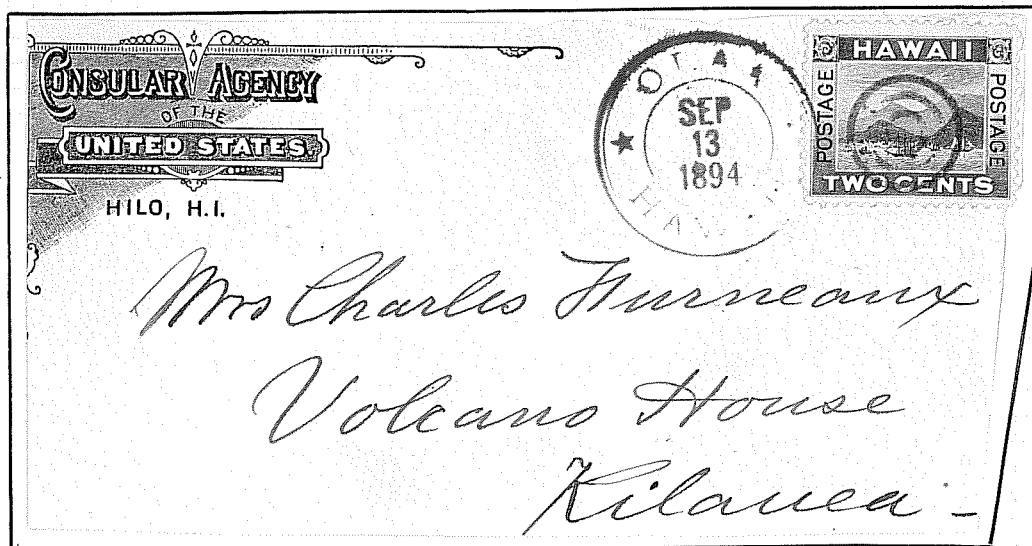 CONSULAR AGENCY
OF THE
UNITED STATES
HILO, H.I.
OLAA
SEP
13
1894
HAWAII
HAWAII
POSTAGE
POSTAGE
TWO CENTS
Mrs Charles Furneaux
Volcano House
Kilauea -